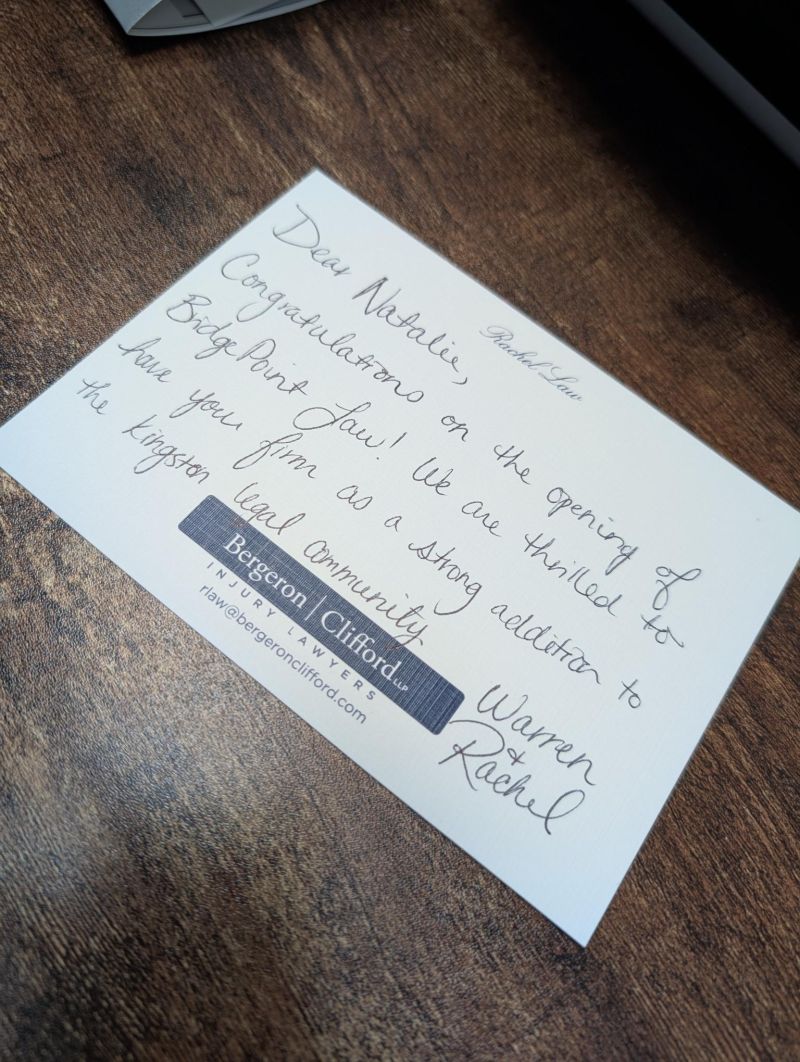 Rachel Law
Dear Natalie,
Congratulations on the opening of
BridgePoint Law! We are thrilled to
have your firm as a strong addition to
the Kingston legal community.
Warren
+
Rachel
Bergeron | Clifford LLP
INJURY LAWYERS
rlaw@bergeronclifford.com